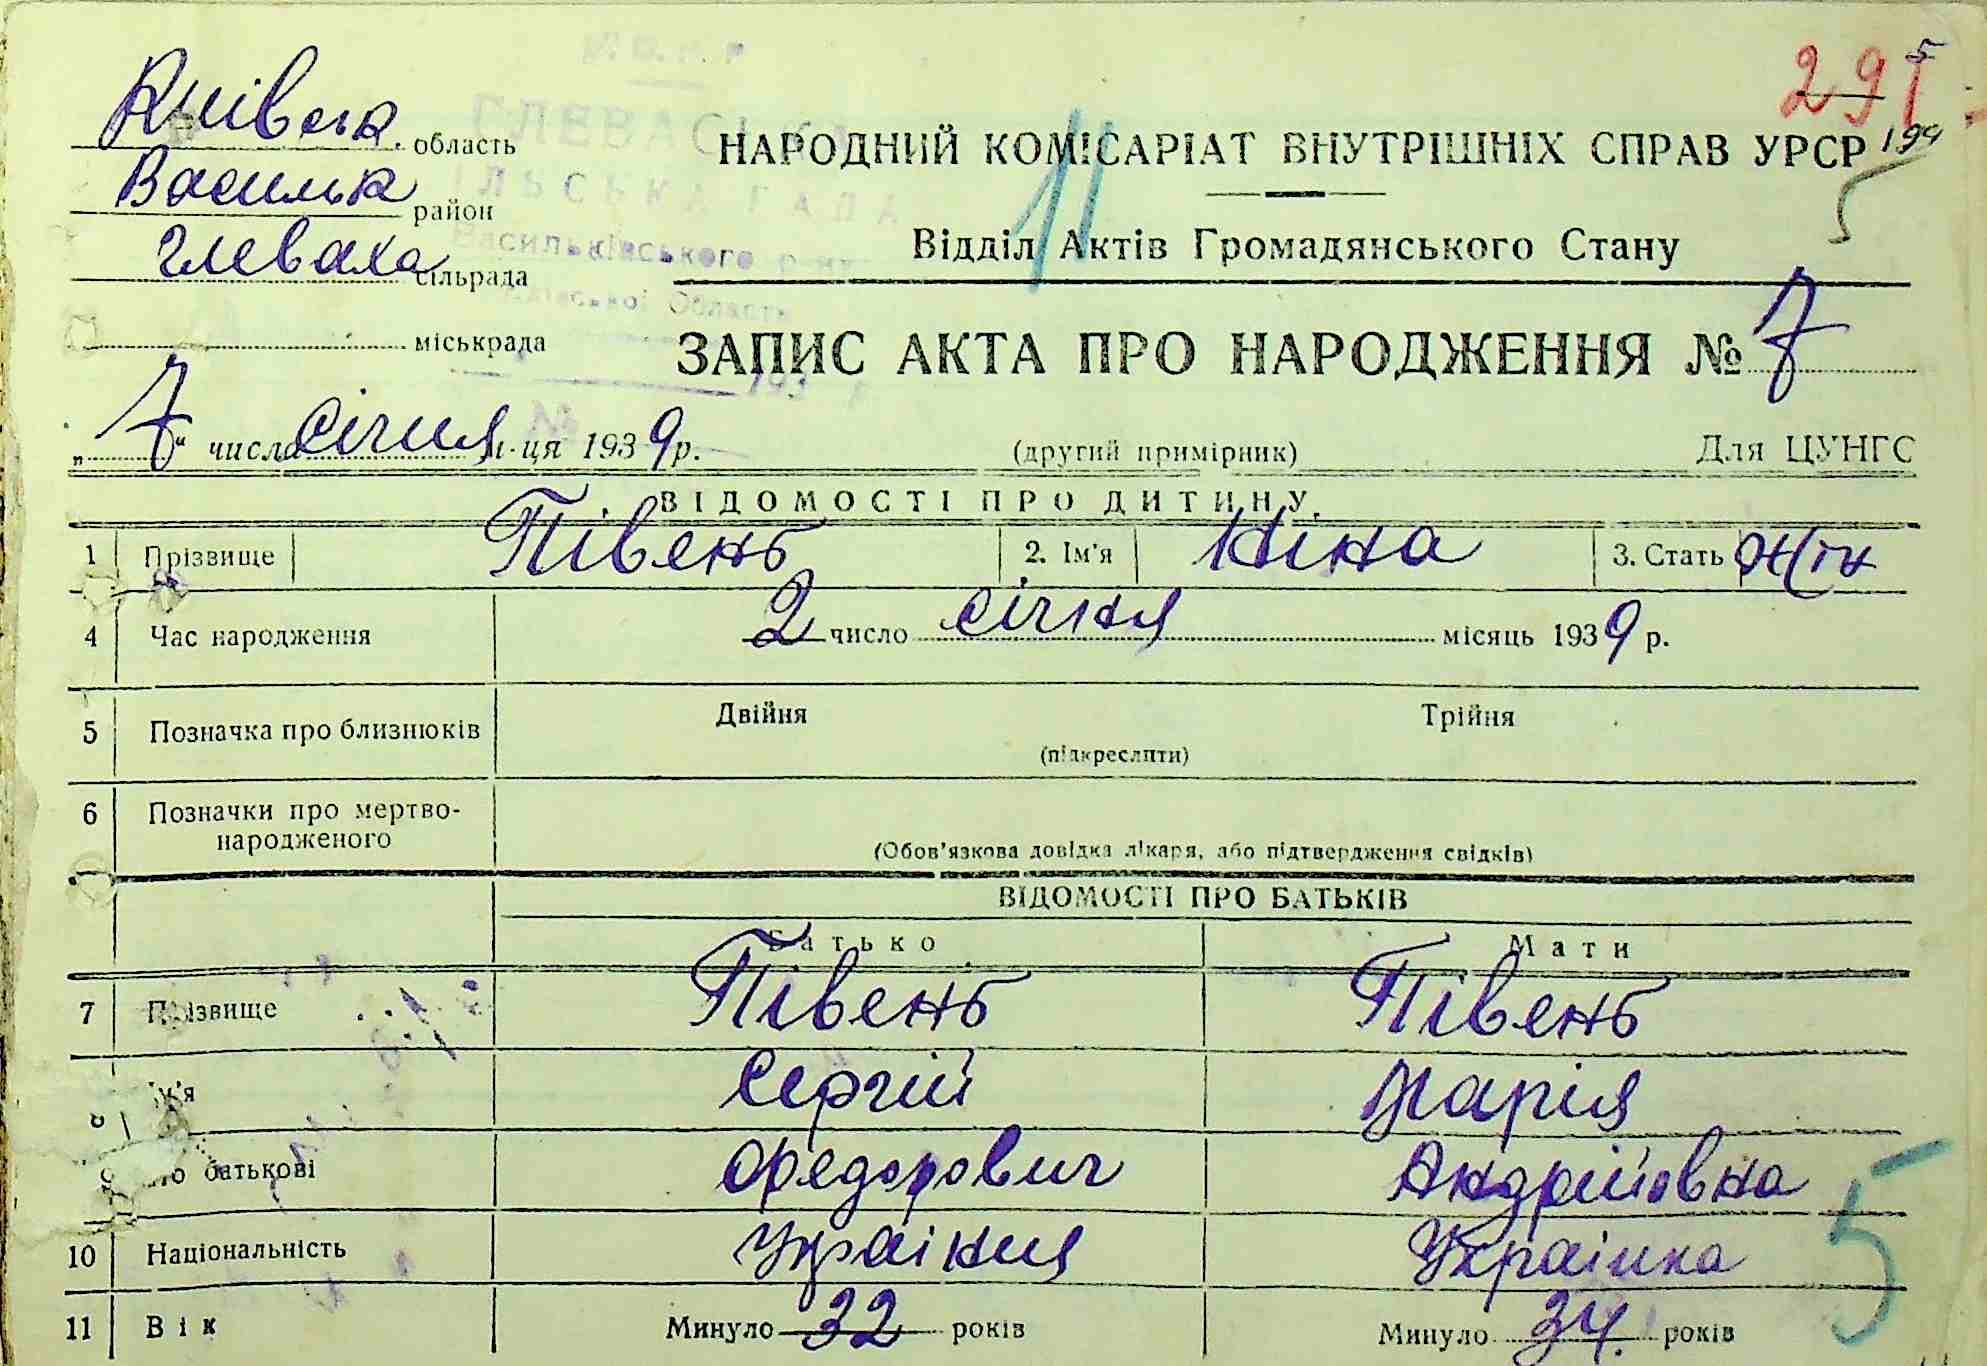 Київськ. область
Васильк район
Глеваха сільрада
міськрада
ГЛЕВАСЬКА
СІЛЬСЬКА РАДА
Васильківського р-ну
Київської Області
193
№
295
194
5
11
НАРОДНИЙ КОМІСАРІАТ ВНУТРІШНІХ СПРАВ УРСР
Відділ Актів Громадянського Стану
ЗАПИС АКТА ПРО НАРОДЖЕННЯ № 7
„7“ числа січня м-ця 1939 р. (другий примірник) Для ЦУНГС
ВІДОМОСТІ ПРО ДИТИНУ
1 Прізвище Півень 2. Ім'я Ніна 3. Стать жін
4 Час народження 2 число січня місяць 1939 р.
5 Позначка про близнюків Двійня Трійня
(підкреслити)
6 Позначки про мертво-
народженого
(Обов'язкова довідка лікаря, або підтвердження свідків)
ВІДОМОСТІ ПРО БАТЬКІВ
Батько Мати
7 Прізвище Півень Півень
Ім'я Сергій Марія
по батькові Федорович Андрійовна
10 Національність Українця Українка
5
11 Вік Минуло 32 років Минуло 34 років